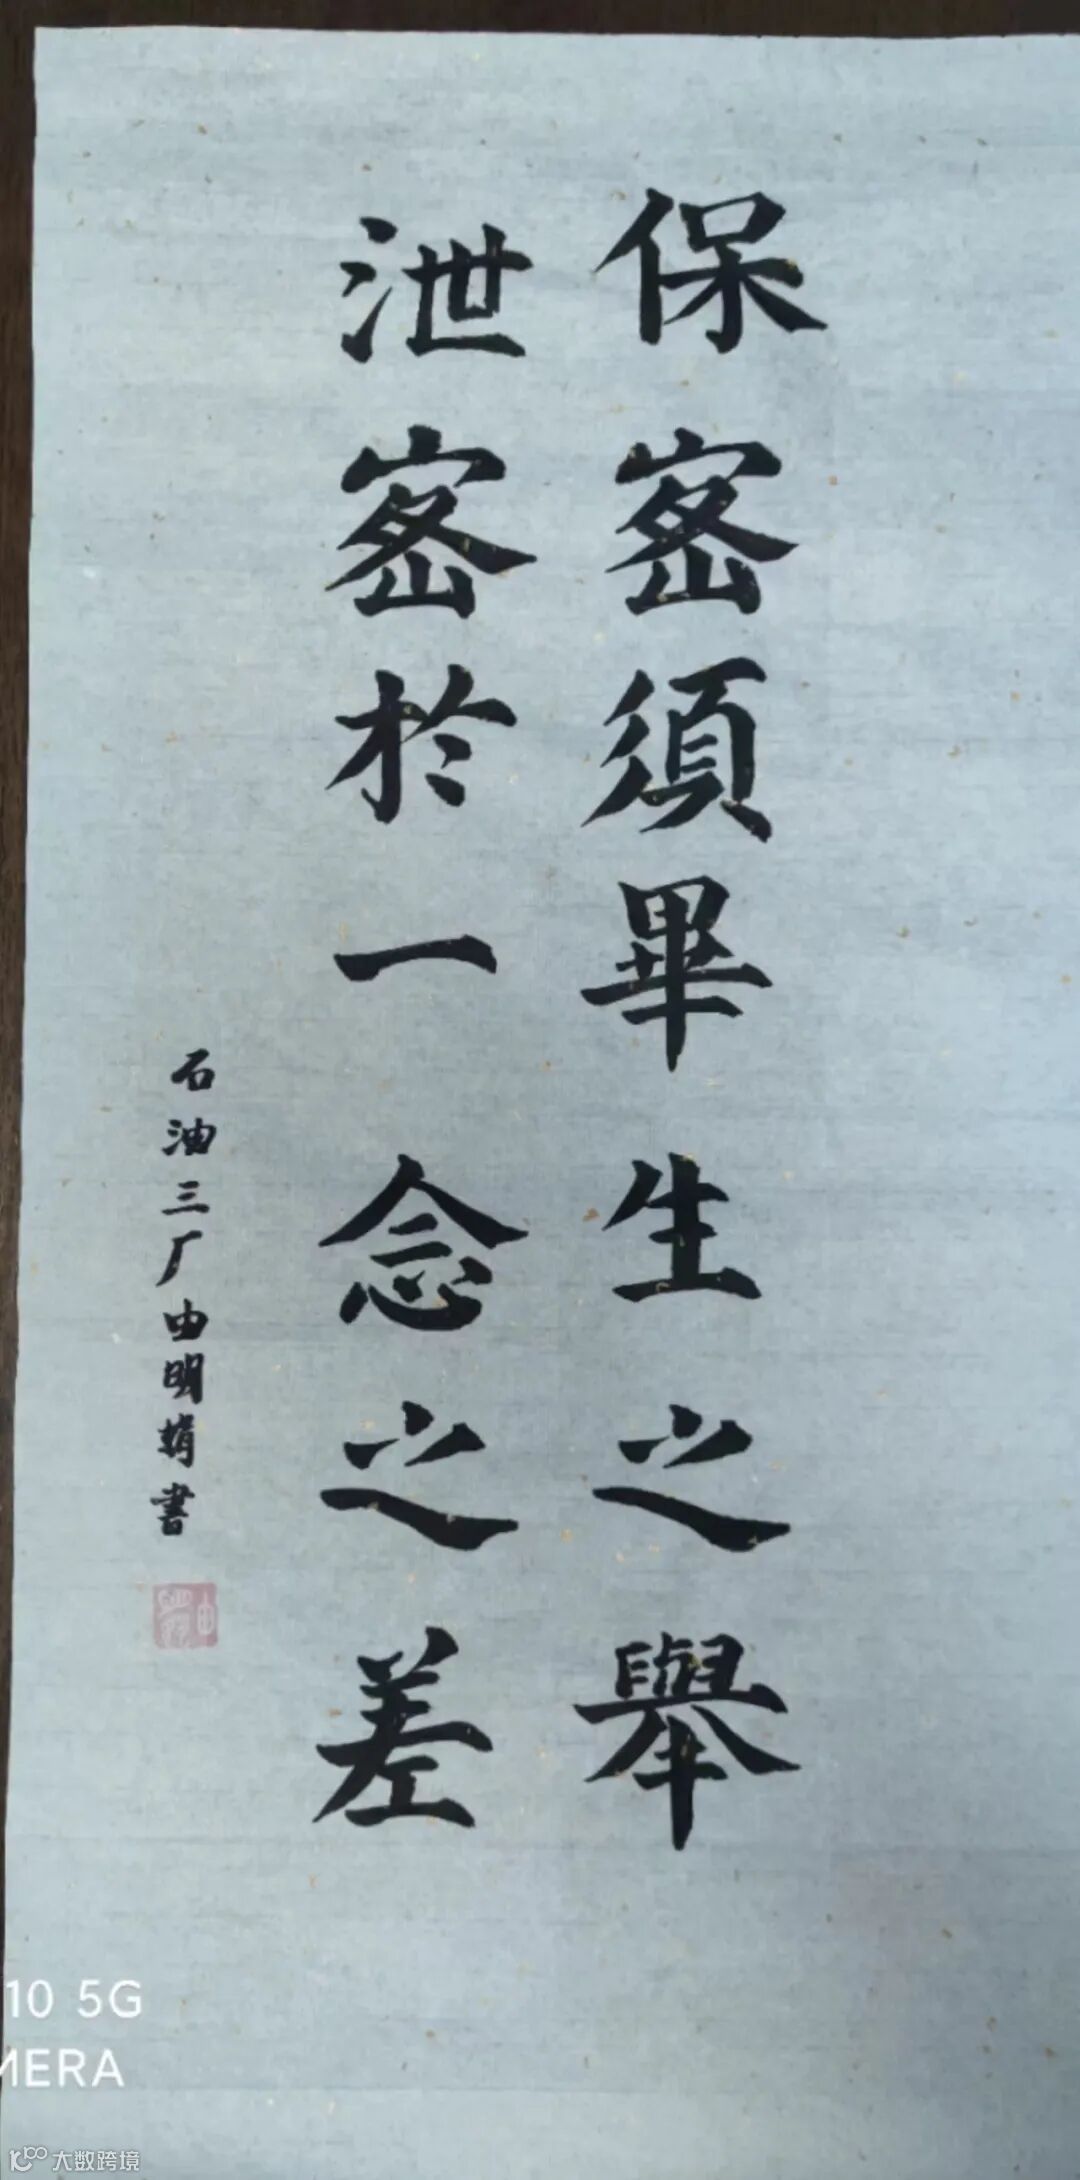 保密須畢生之舉
泄密於一念之差
石油三厂由明辑書
10 5G
MERA
大数跨境